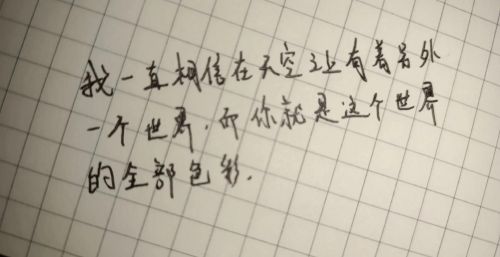 我一直相信在天空之上有着另外
一个世界,而你就是这个世界
的全部色彩.